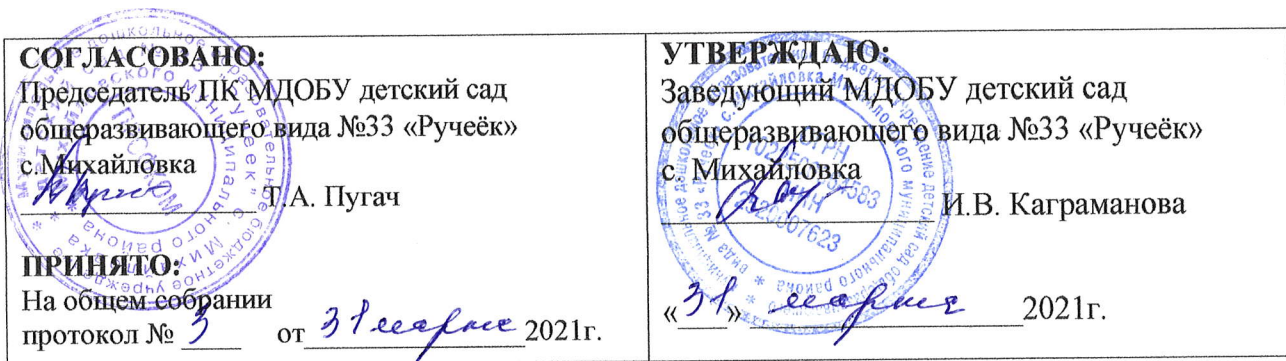 СОГЛАСОВАНО:
Председатель ПК МДОБУ детский сад
общеразвивающего вида №33 «Ручеёк»
с.Михайловка
Т.А. Пугач
ПРИНЯТО:
На общем собрании
протокол № 3 от 31 марта 2021г.
УТВЕРЖДАЮ:
Заведующий МДОБУ детский сад
общеразвивающего вида №33 «Ручеёк»
с. Михайловка
И.В. Каграманова
«31» марта 2021г.